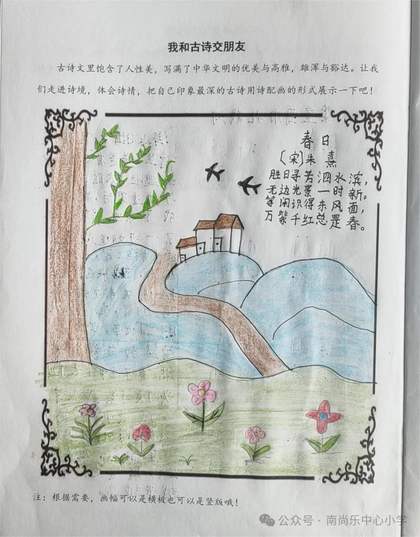 我和古诗交朋友
古诗文里饱含了人性美，写满了中华文明的优美与高雅，雄浑与豁达。让我
们走进诗境，体会诗情，把自己印象最深的古诗用诗配画的形式展示一下吧！
春日
〔宋〕朱熹
胜日寻芳泗水滨，
无边光景一时新。
等闲识得东风面，
万紫千红总是春。
注：根据需要，画幅可以是横板也可以是竖版哦！
公众号·南尚乐中心小学